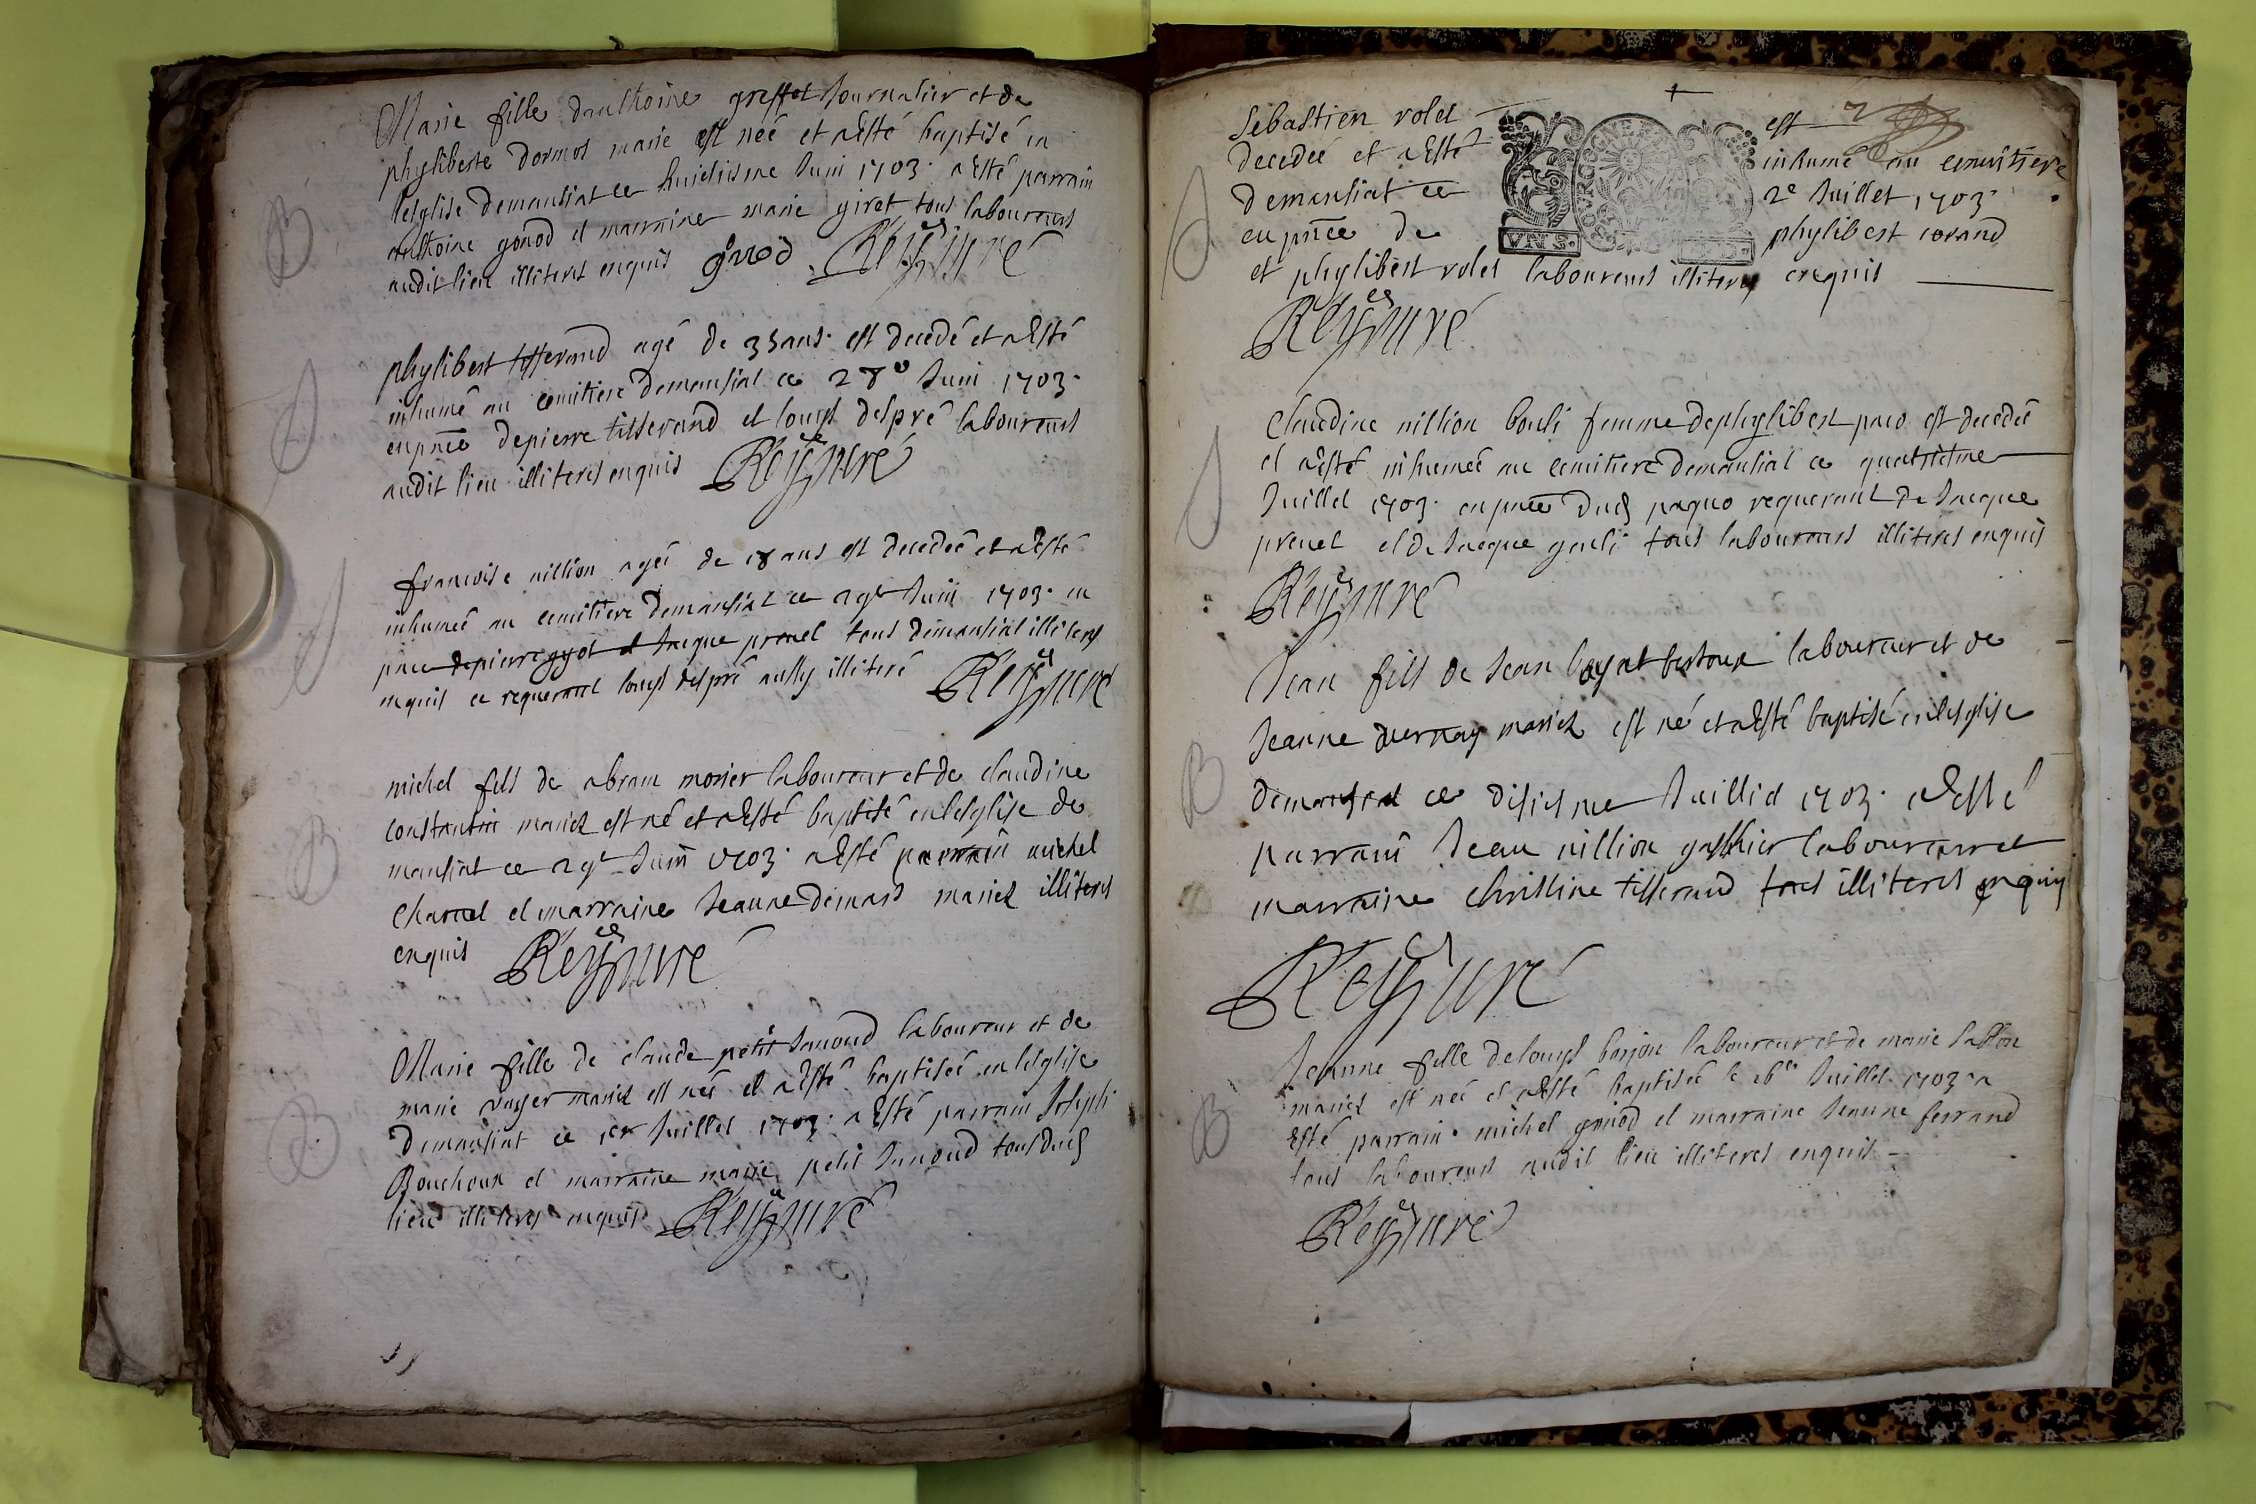 B
Marie fille danthoine greffet Journalier et de
phyliberte dormos marie est neé et a Esté baptisé en
lesglise demansiat ce huictiesme Juin 1703. a Esté parrain
anthoine gonod et marraine marie giret tous laboureurs
audit lieu illiteres enquis gonod Rey curé
phylibert tisserand agé de 35 ans. est decedé et a Esté
inhumé au cemitiere demansiat ce 28e Juin 1703.
en pnce depierre tisserand et louys despré laboureurs
audit lieu illiteres enquis Rey curé
francoise nillion ageé de 18 ans est decedeé et a Esté
inhumeé au cemitiere demansiat ce 29e Juin 1703. en
pnce depierre gyot et Jacque prenel tous demansiat illiteres
enquis ce requerant louys despré aussy illiteré Rey curé
B
michel fils de abram morier laboureur et de claudine
constantin mariez est né et a Esté baptisé en lesglise de
mansiat ce 29e Juin 1703. a Esté parrain michel
Charnel et marraine Jeanne dimard mariez illiteres
enquis Rey curé
B
Marie fille de claude petit Januoud laboureur et de
marie mariez est neé et a Esté baptiseé en lesglise
demansiat ce 1er Juillet 1703. a Esté parrain Joseph
Bouchoux et marraine marie petit Januoud tous dud
lieu illiteres enquis Rey curé
Sebastien rolet est 7
decedeé et a Esté inhumé au cemitiere
demansiat ce 2e Juillet 1703.
en pnce de phylibert corand
et phylibert rolet laboureurs illiteres enquis
BOURGOGNE
VN S.
Rey curé
Claudine nillion bouli femme dephylibert paco est decedeé
et a Esté inhumeé au cemitiere demansiat ce quatriesme
Juillet 1703. en pnce dud paquo requerant de Jacque
prenel et de Jacque gouli tous laboureurs illiteres enquis
Rey curé
B
Jean fils de Jean bayat laboureur et de
Jeanne mariez est né et a Esté baptisé en lesglise
demansiat ce disiesme Juillet 1703. a Esté
parrain Jean nillion laboureur et
marraine christine tisserand tous illiteres enquis
Rey curé
B
Jeanne fille de louys borjon laboureur et de marie sablon
mariez est neé et a Esté baptiseé le Juillet 1703. a
Esté parrain michel gonod et marraine Jeanne ferrand
tous laboureurs audit lieu illiteres enquis
Rey curé